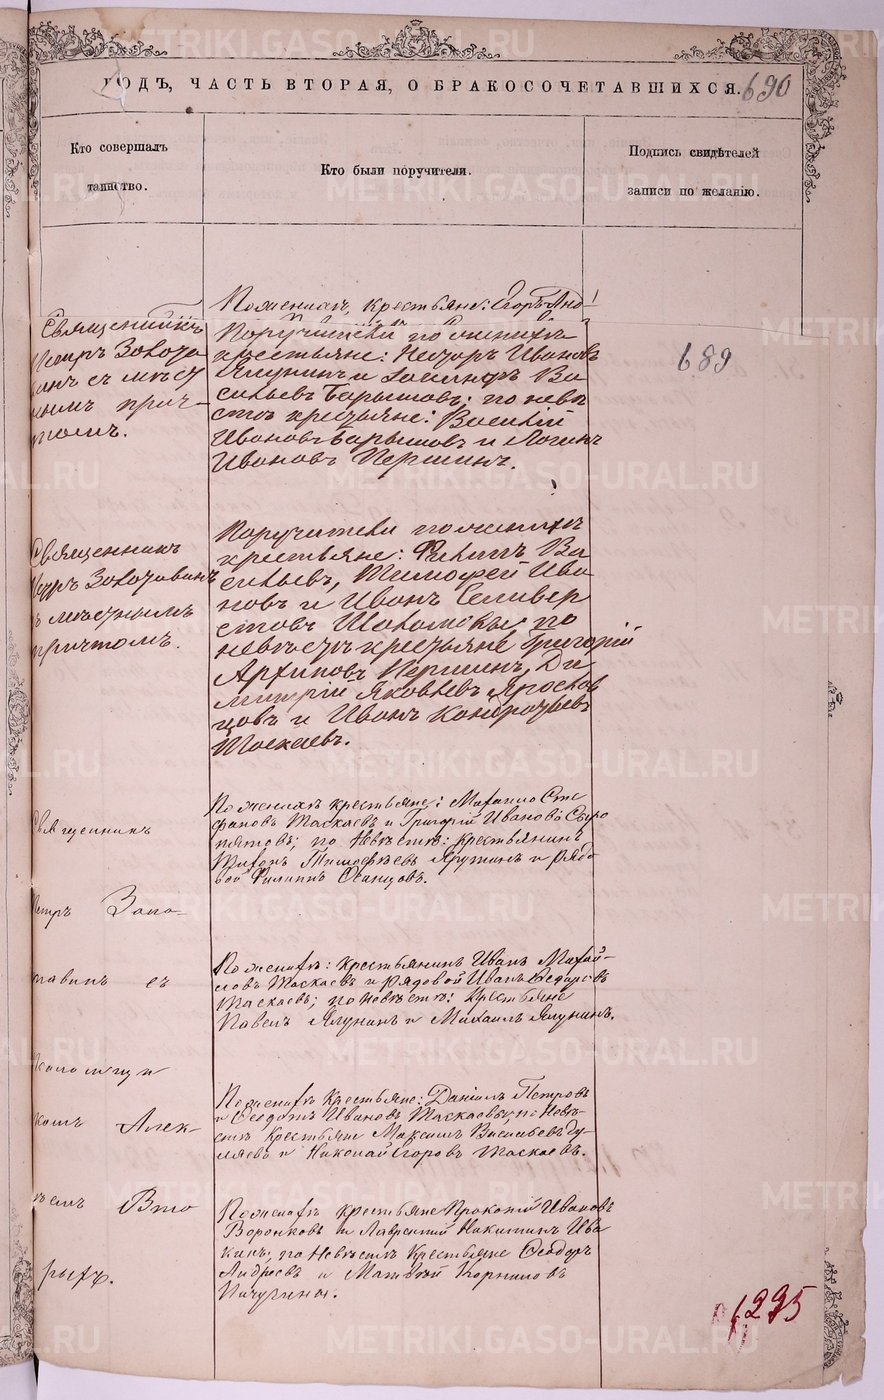 ГОДЪ, ЧАСТЬ ВТОРАЯ, О БРАКОСОЧЕТАВШИХСЯ.
690
Кто совершалъ
таинство.
Кто были поручители.
Подпись свидѣтелей
записи по желанію.
689
По женихѣ, крестьяне: Егоръ
Священникъ
Петръ Золота
винъ съ мѣст
нымъ прич-
томъ.
Поручители по женихѣ
крестьяне: Иванов
Ялунинъ и Ва
сильевъ Барышовъ; по невѣ
стѣ крестьяне: Василій
Ивановъ Барышовъ и Логинъ
Ивановъ Першинъ.
Священникъ
Петръ Золотавинъ
съ мѣстнымъ
причтомъ.
Поручители по женихѣ
крестьяне: Филипъ Ва
сильевъ, Тимофей Ива
новъ и Иванъ Селивер
стовъ по
невѣстѣ крестьяне Григорій
Архиповъ Першинъ, Ди
митрій Яковлевъ Ярослав
цовъ и Иванъ Кондратьевъ
Таскаевъ.
Священникъ
Петръ Золо-
тавинъ съ
псаломщи
комъ Алек-
ѣемъ Вто
рыхъ.
По женихѣ крестьяне: Михаилъ Сте
фановъ Таскаевъ и Григорій Ивановъ Сыро
пятовъ; по невѣстѣ: крестьянинъ
Тихонъ Тимофѣевъ и рядо
вой Филиппъ
По женихѣ: крестьянинъ Иванъ Михай-
ловъ Таскаевъ и рядовой Иванъ Федоровъ
Таскаевъ; по невѣстѣ: крестьяне
Павелъ Ялунинъ и Михаилъ Ялунинъ.
По женихѣ крестьяне: Даніилъ Петровъ
и Феодотъ Ивановъ Таскаевы; по невѣ-
стѣ крестьяне Максимъ Васильевъ
и Николай Егоровъ Таскаевъ.
По женихѣ крестьяне Прокопій Ивановъ
Воронковъ и Лаврентій Никитинъ Ива
кинъ; по невѣстѣ крестьяне Феодоръ
Андреевъ и Матвѣй Корниловъ
Пичугины.
METRIKI.GASO-URAL.RU